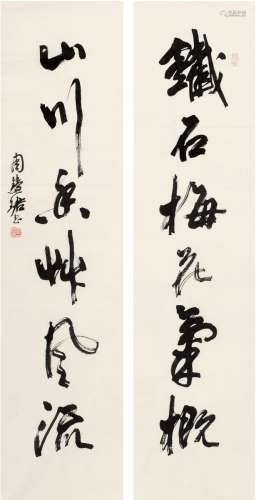 鐵石梅花氣概
山川香艸風流
周慧珺